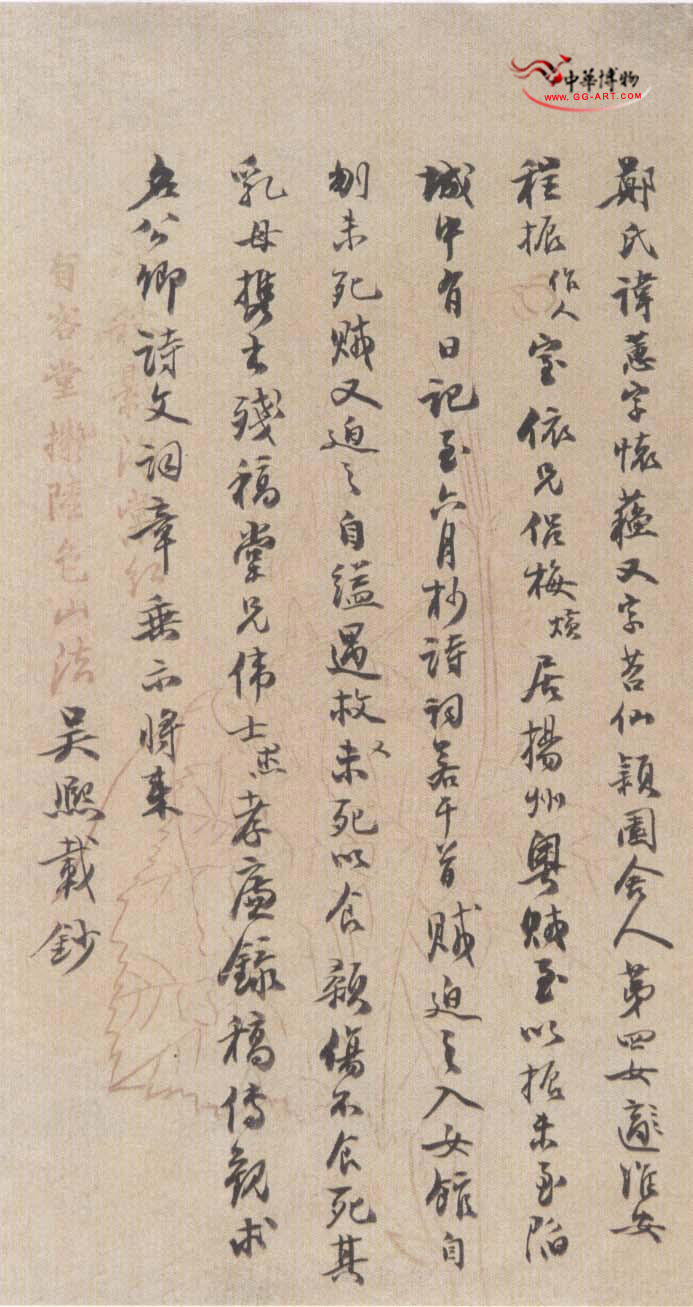 中華博物
www. GG-ART.COM
鄭氏諱蕙字懷蘐又字苕仙穎園舍人第四女適淮安
程振作人室依兄侶梅煐居揚州粵賊至以振未至陷
城中有日記至六月杪詩詞若干首賊迫之入女館自
刎未死賊又迫之自縊遇救又未死以食顙傷不食死其
乳母攜出殘稿堂兄偉士杰孝廉錄稿傳觀求
名公卿詩文詞章垂示將來
吳熙載鈔
有容堂撫陸包山法